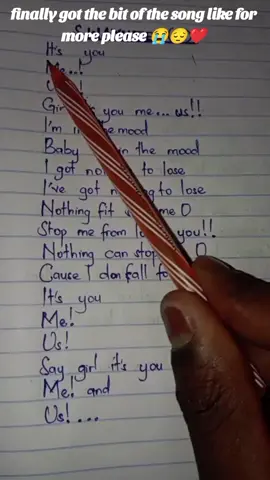 finally got the bit of the song like for
more please 😭😔❤️
It's you
Me...!
Us!
Girl you me... us!!
I'm in the mood
Baby in the mood
I got to lose
I've got to lose
Nothing fit me O
Stop me from you!!
Nothing can stop O
Cause I don fall
It's you
Me!
Us!
Say girl it's you
Me! and
Us!...